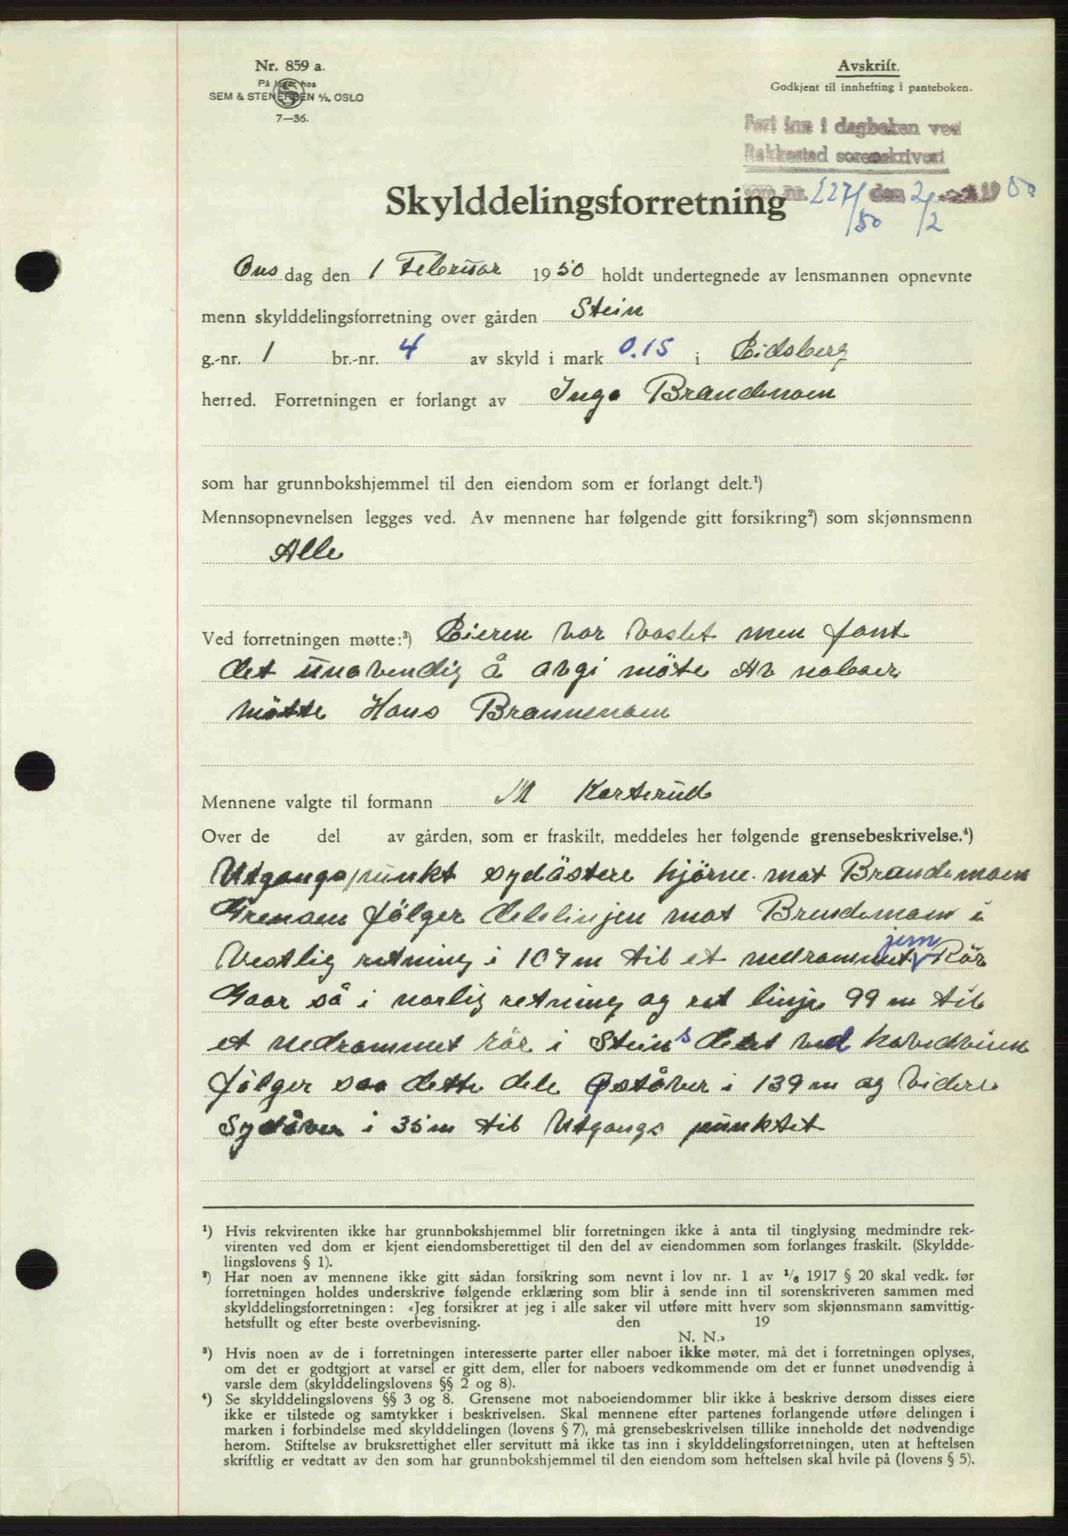 Nr. 859 a.
På lager hos
SEM & STENERSEN A/S, OSLO
7—36.
Avskrift.
Godkjent til innhefting i panteboken.
Ført inn i dagboken ved
Rakkestad sorenskriveri
som nr. 227/50 den 2/2 1950
Skylddelingsforretning
Ons dag den 1 Februar 1950 holdt undertegnede av lensmannen opnevnte
menn skylddelingsforretning over gården Stein
g.-nr. 1 br.-nr. 4 av skyld i mark 0.15 i Eidsberg
herred. Forretningen er forlangt av Inga Brandmoen
som har grunnbokshjemmel til den eiendom som er forlangt delt.¹)
Mennsopnevnelsen legges ved. Av mennene har følgende gitt forsikring²) som skjønnsmenn
Alle
Ved forretningen møtte:³) Eieren var vaslet men fant
det unøvendig å avgi möte Av naboer
møtte Hans Brannemoen
Mennene valgte til formann M Karterud
Over de del av gården, som er fraskilt, meddeles her følgende grensebeskrivelse.⁴)
Utgangspunkt sydöstere hjörne mot Brandemoen
Grensen fölger delelinjen mot Brendemoen i
Vestlig retning i 107 m til et nedrammet jern Rör
Gaar så i norlig retning og ret linje 99 m til
et nedrammet rör i Steins delet ved
fölger saa dette dele Østover i 139 m og videre
Sydover i 35 m til Utgangs punktet
¹) Hvis rekvirenten ikke har grunnbokshjemmel blir forretningen ikke å anta til tinglysing medmindre rek-
virenten ved dom er kjent eiendomsberettiget til den del av eiendommen som forlanges fraskilt. (Skyldde-
lingslovens § 1).
²) Har noen av mennene ikke gitt sådan forsikring som nevnt i lov nr. 1 av 1/6 1917 § 20 skal vedk. før
forretningen holdes underskrive følgende erklæring som blir å sende inn til sorenskriveren sammen med
skylddelingsforretningen: «Jeg forsikrer at jeg i alle saker vil utføre mitt hverv som skjønnsmann samvittig-
hetsfullt og efter beste overbevisning. den 19
N. N.»
³) Hvis noen av de i forretningen interesserte parter eller naboer ikke møter, må det i forretningen oplyses,
om det er godtgjort at varsel er gitt dem, eller for naboers vedkommende om det er funnet unødvendig å
varsle dem (skylddelingslovens §§ 2 og 8).
⁴) Se skylddelingslovens §§ 3 og 8. Grensene mot naboeiendommer blir ikke å beskrive dersom disses eiere
ikke er tilstede og samtykker i beskrivelsen. Skal mennene efter partenes forlangende utføre delingen i
marken i forbindelse med skylddelingen (lovens § 7), må grensebeskrivelsen tillike inneholde det nødvendige
herom. Stiftelse av bruksrettighet eller servitutt må ikke tas inn i skylddelingsforretningen, uten at heftelsen
skriftlig er vedtatt av den som har grunnbokshjemmel til den eiendom som heftelsen skal hvile på (lovens § 5).